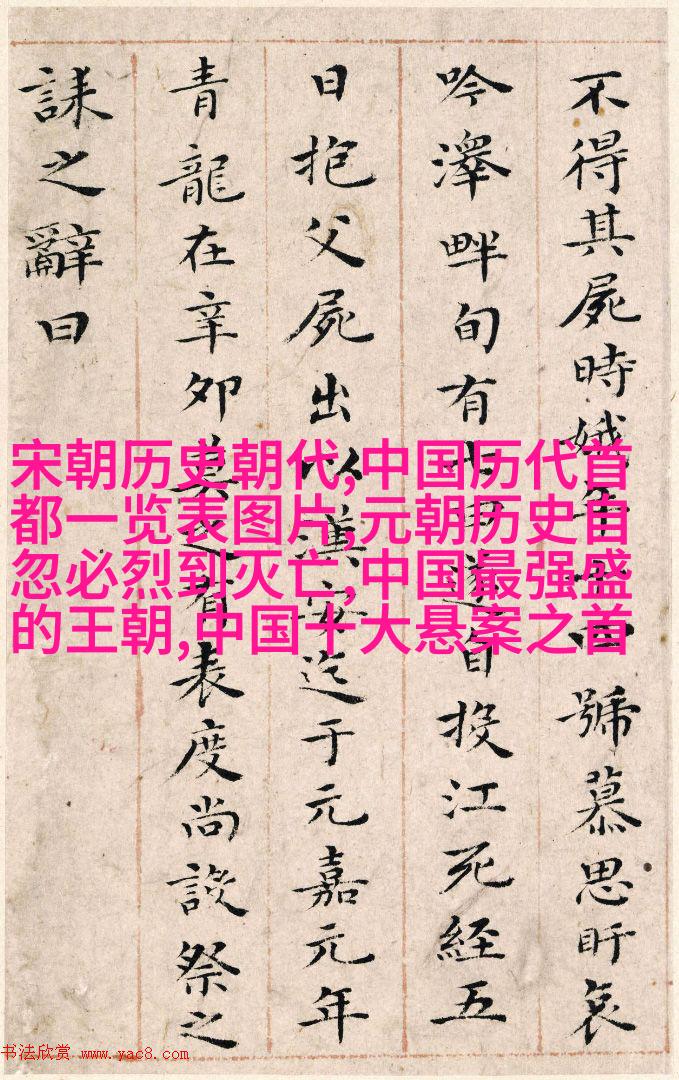 不得其屍時娥年十四號慕思盱哀
吟澤畔旬有七日遂自投江死經五
日抱父屍出以漢安迄于元嘉元年
青龍在辛卯莫之有表度尚設祭之
誄之辭曰
宋朝历史朝代,中国历代首
都一览表图片,元朝历史自
忽必烈到灭亡,中国最强盛
的王朝,中国十大悬案之首
书法欣赏 www.yac8.com